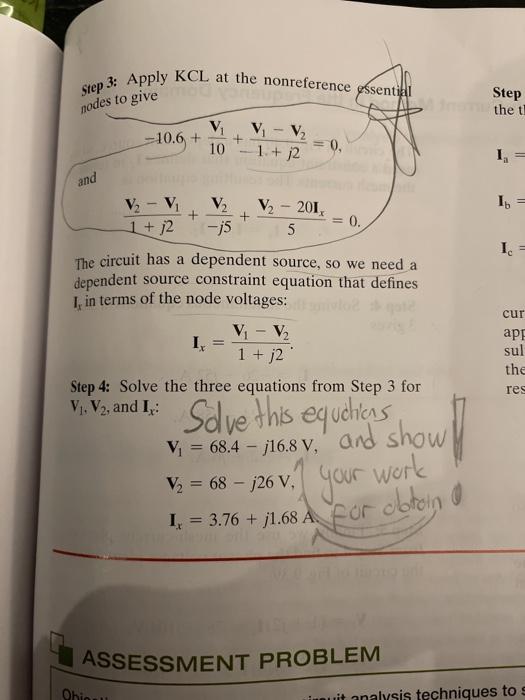 Step 3: Apply KCL at the nonreference essential
nodes to give
−10.6 + V₁/10 + (V₁ − V₂)/(1 + j2) = 0,
and
(V₂ − V₁)/(1 + j2) + V₂/(−j5) + (V₂ − 20Iₓ)/5 = 0.
The circuit has a dependent source, so we need a
dependent source constraint equation that defines
Iₓ in terms of the node voltages:
Iₓ = (V₁ − V₂)/(1 + j2).
Step 4: Solve the three equations from Step 3 for
V₁, V₂, and Iₓ:
Solve this equations
and show
your work
for obtain
V₁ = 68.4 − j16.8 V,
V₂ = 68 − j26 V,
Iₓ = 3.76 + j1.68 A.
ASSESSMENT PROBLEM
Step
the
Iₐ =
I_b =
I_c =
cur
app
sul
the
res
analysis techniques to